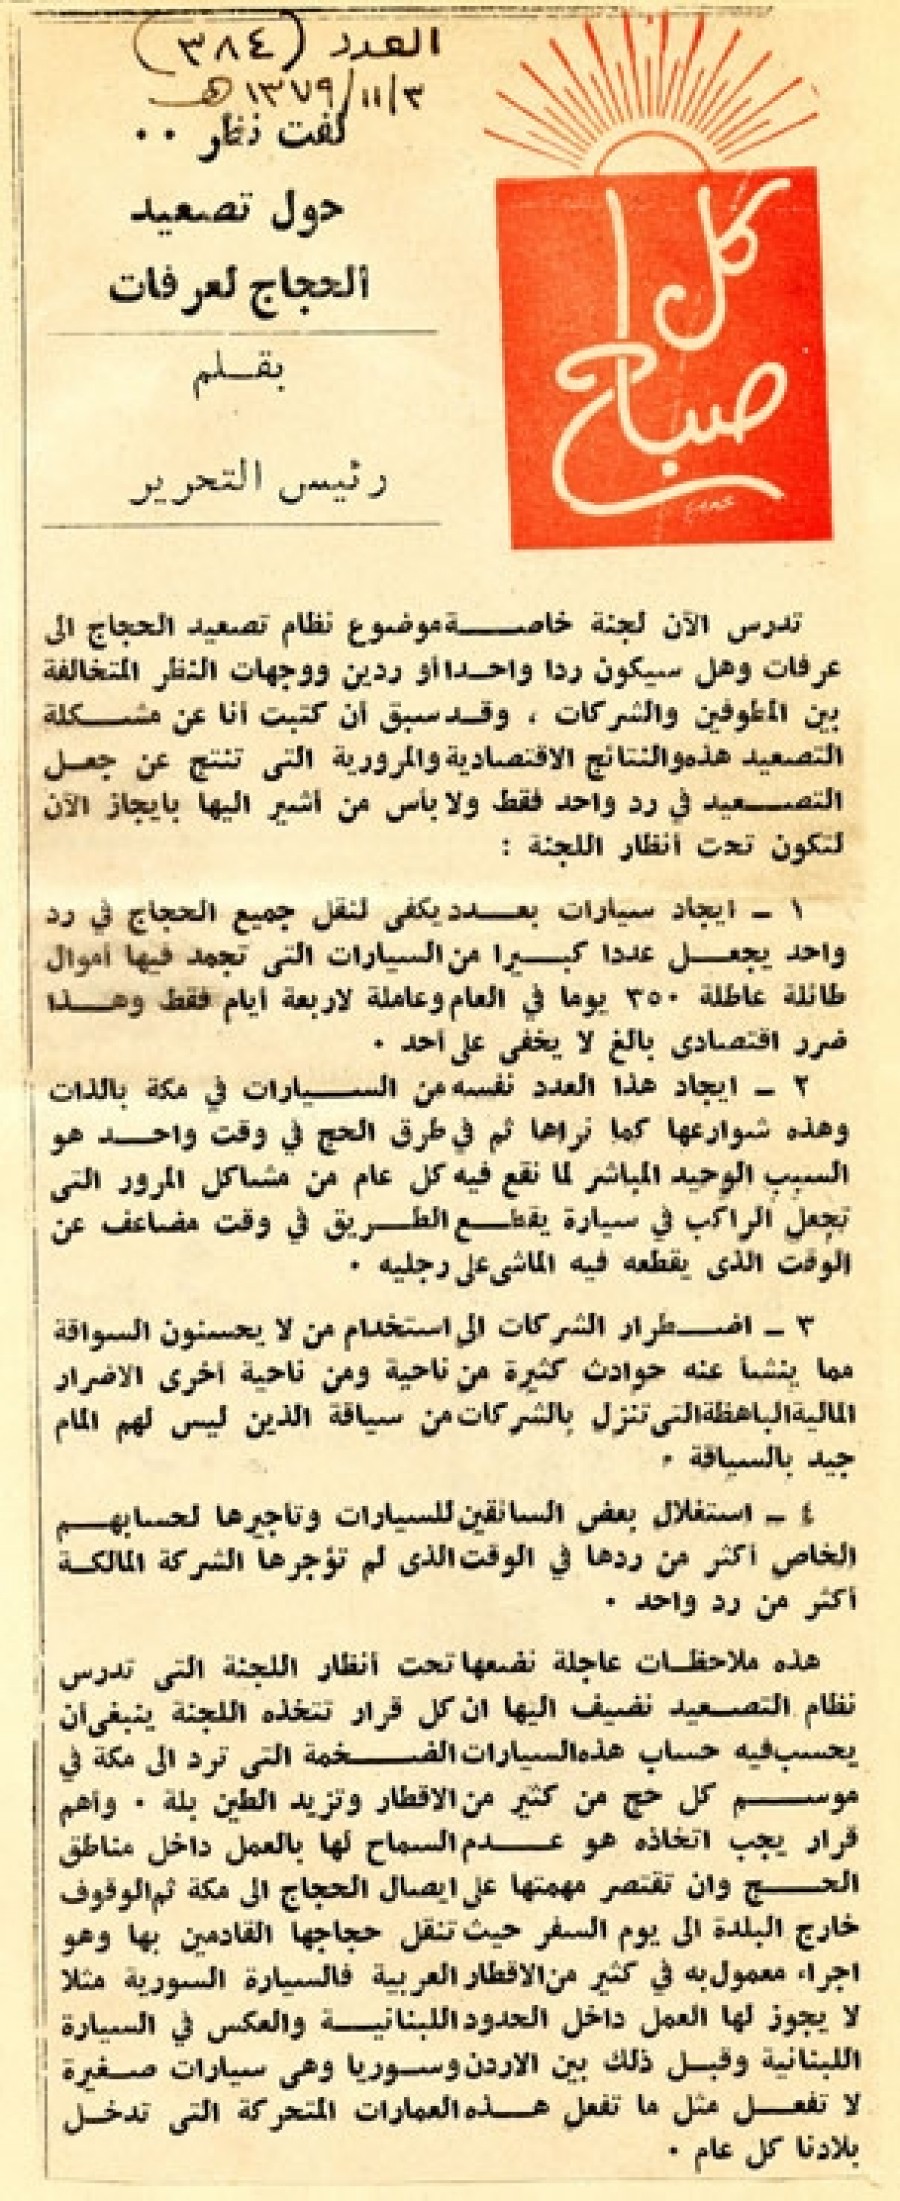 العدد (٣٨٤)
١٣٧٩/١١/٣ هـ
كل
صباح
لفت نظر ..
حول تصعيد
الحجاج لعرفات
بقـــلم
رئيس التحرير
تدرس الآن لجنة خاصـــة موضوع نظام تصعيد الحجاج الى
عرفات وهل سيكون ردا واحـدا أو ردين ووجهات النظر المتخالفة
بين المطوفين والشركات ، وقـد سبق أن كتبت أنا عن مشـــكلة
التصعيد هذه والنتائج الاقتصادية والمرورية التى تنتج عن جعــل
التصـــعيد في رد واحد فقط ولا بأس من أشير اليها بايجاز الآن
لتكون تحت أنظار اللجنة :
١ ــ ايجاد سيارات بعــدد يكفى لنقل جميع الحجاج في رد
واحد يجعـــل عددا كبـــيرا من السيارات التى تجمد فيها أموال
طائلة عاطلة ٣٥٠ يوما في العام وعاملة لاربعة أيام فقط وهــذا
ضرر اقتصادى بالغ لا يخفى على أحد .
٢ ــ ايجاد هذا العدد نفسه من الســـيارات في مكة بالذات
وهذه شوارعها كما نراها ثم في طرق الحج في وقت واحــد هو
السبب الوحيد المباشر لما نقع فيه كل عام من مشاكل المرور التى
تجعل الراكب في سيارة يقطـــع الطـــريق في وقت مضاعف عن
الوقت الذى يقطعه فيه الماشى على رجليه .
٣ ــ اضـــطرار الشركات الى استخدام من لا يحسنون السواقة
مما ينشأ عنه حوادث كثيرة من ناحية ومن ناحية أخرى الاضرار
المالية الباهظة التى تنزل بالشركات من سياقة الذين ليس لهم المام
جيد بالسياقة .
٤ ــ استغلال بعض السائقين للسيارات وتأجيرها لحسابهـــم
الخاص أكثر من ردها في الوقت الذى لم تؤجرها الشركة المالكــة
أكثر من رد واحد .
هذه ملاحظــات عاجلة نضعها تحت أنظار اللجنة التى تدرس
نظام التصـــعيد نضيف اليها ان كل قرار تتخذه اللجنة ينبغى أن
يحسب فيه حساب هذه السيارات الضـــخمة التى ترد الى مكة في
موســـم كل حج من كثير من الاقطار وتزيد الطين بلة . وأهم
قرار يجب اتخاذه هو عـــدم السماح لها بالعمل داخل مناطق
الحـــج وان تقتصر مهمتها على ايصال الحجاج الى مكة ثم الوقوف
خارج البلدة الى يوم السفر حيث تنقل حجاجها القادمين بها وهو
اجراء معمول به في كثير من الاقطار العربية فالسيارة السورية مثلا
لا يجوز لها العمل داخل الحدود اللبنانيـــة والعكس في السيارة
اللبنانية وقبــل ذلك بين الاردن وسوريا وهى سيارات صــغيرة
لا تفعـــل مثل ما تفعل هـــذه العمارات المتحركة التى تدخــل
بلادنا كل عام .